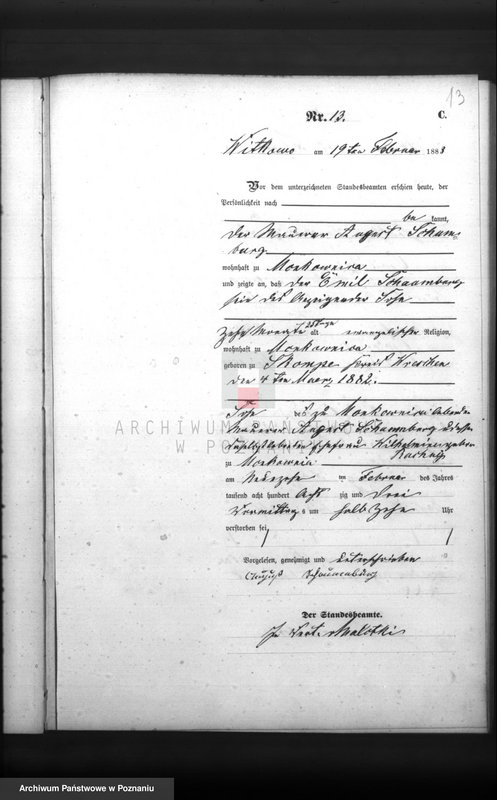 13
Nr. 13. C.
Witkowo am 19ten Februar 1883
Vor dem unterzeichneten Standesbeamten erschien heute, der
Persönlichkeit nach
be kannt,
der Maurer August Scham
burg
wohnhaft zu Mokownica
und zeigte an, daß der Emil Schaamburg
des Anzeigender Sohn
Zehn Monate alt evangelischer Religion,
wohnhaft zu Mokownica
geboren zu Skompe Kreis Wreschen
den 4ten Maerz 1882.
Sohn des zu Mokownica lebenden
Maurer August Schamburg
Ehefrau Wilhelmine geboren
zu Mokownica
am Neunzehn ten Februar des Jahres
tausend acht hundert Acht zig und Drei
Vormittag s um halb Zehn Uhr
verstorben sei
Vorgelesen, genehmigt und unterschrieben
August Schaumburg
Der Standesbeamte.
Malotki
ARCHIWUM PAŃSTWOWE
W POZNANIU
Archiwum Państwowe w Poznaniu